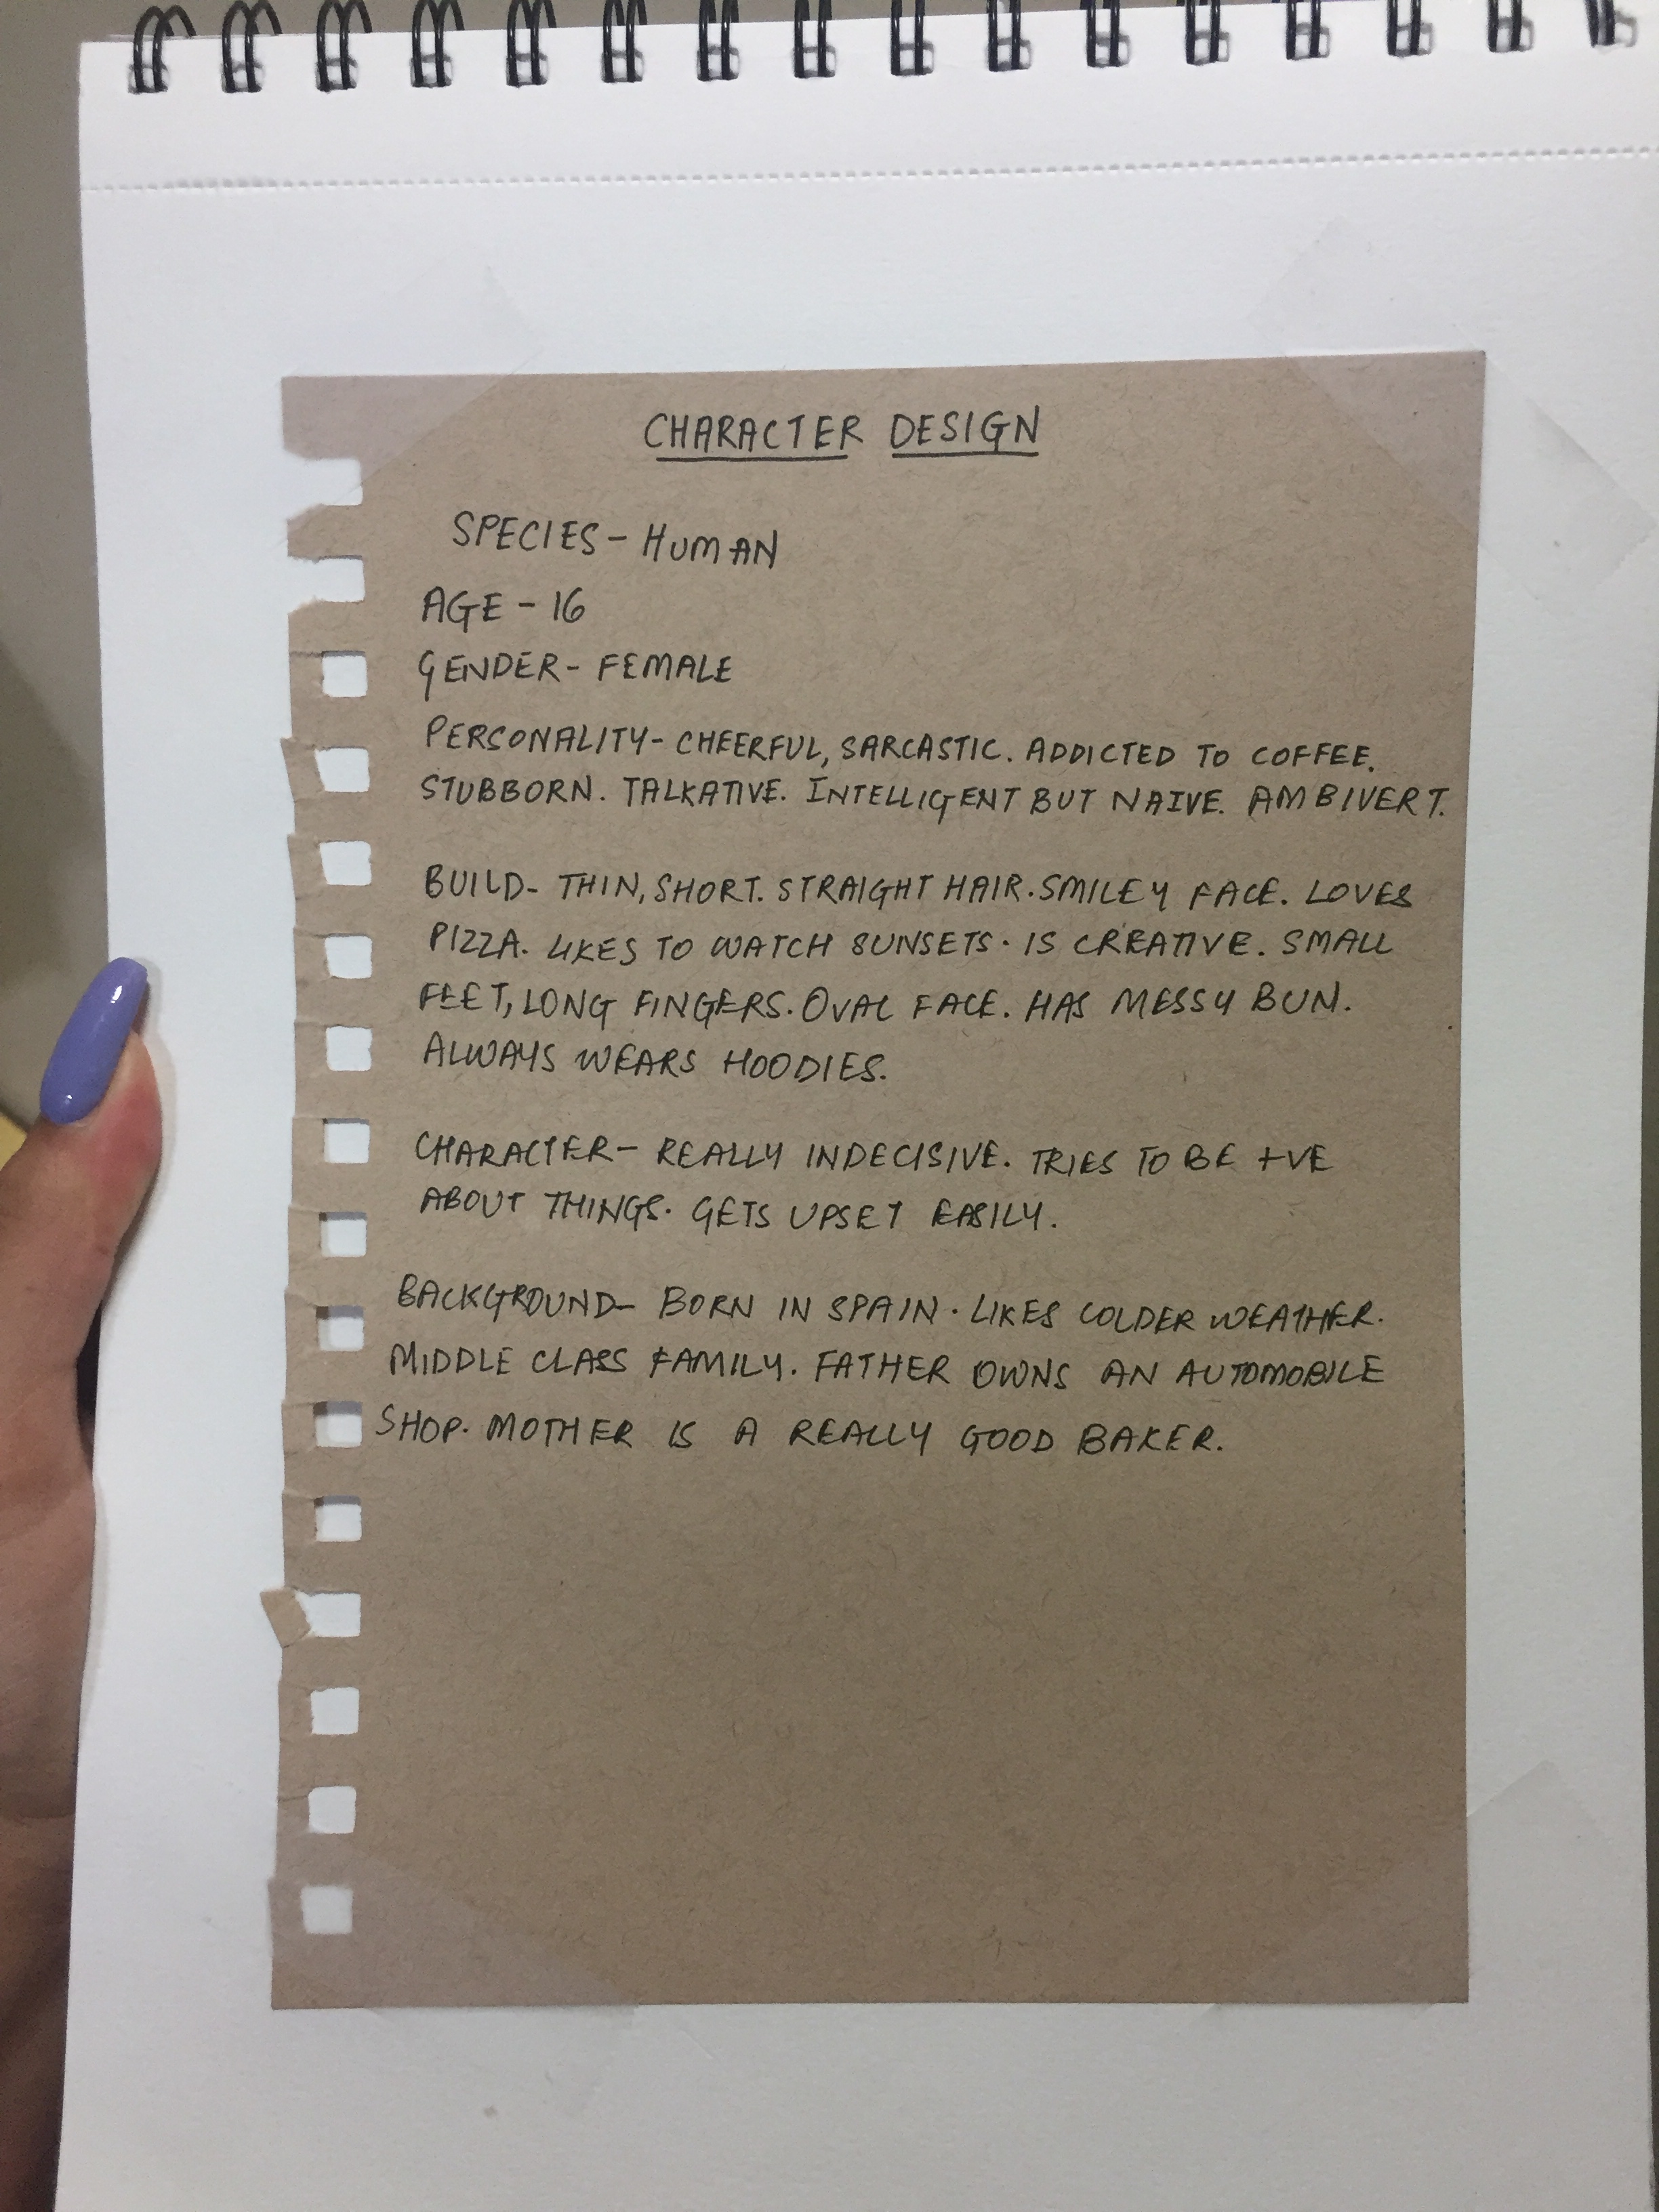 CHARACTER DESIGN
SPECIES - HUMAN
AGE - 16
GENDER - FEMALE
PERSONALITY - CHEERFUL, SARCASTIC. ADDICTED TO COFFEE.
STUBBORN. TALKATIVE. INTELLIGENT BUT NAIVE. AMBIVERT.
BUILD - THIN, SHORT. STRAIGHT HAIR. SMILEY FACE. LOVES
PIZZA. LIKES TO WATCH SUNSETS. IS CREATIVE. SMALL
FEET, LONG FINGERS. OVAL FACE. HAS MESSY BUN.
ALWAYS WEARS HOODIES.
CHARACTER - REALLY INDECISIVE. TRIES TO BE +VE
ABOUT THINGS. GETS UPSET EASILY.
BACKGROUND - BORN IN SPAIN. LIKES COLDER WEATHER.
MIDDLE CLASS FAMILY. FATHER OWNS AN AUTOMOBILE
SHOP. MOTHER IS A REALLY GOOD BAKER.